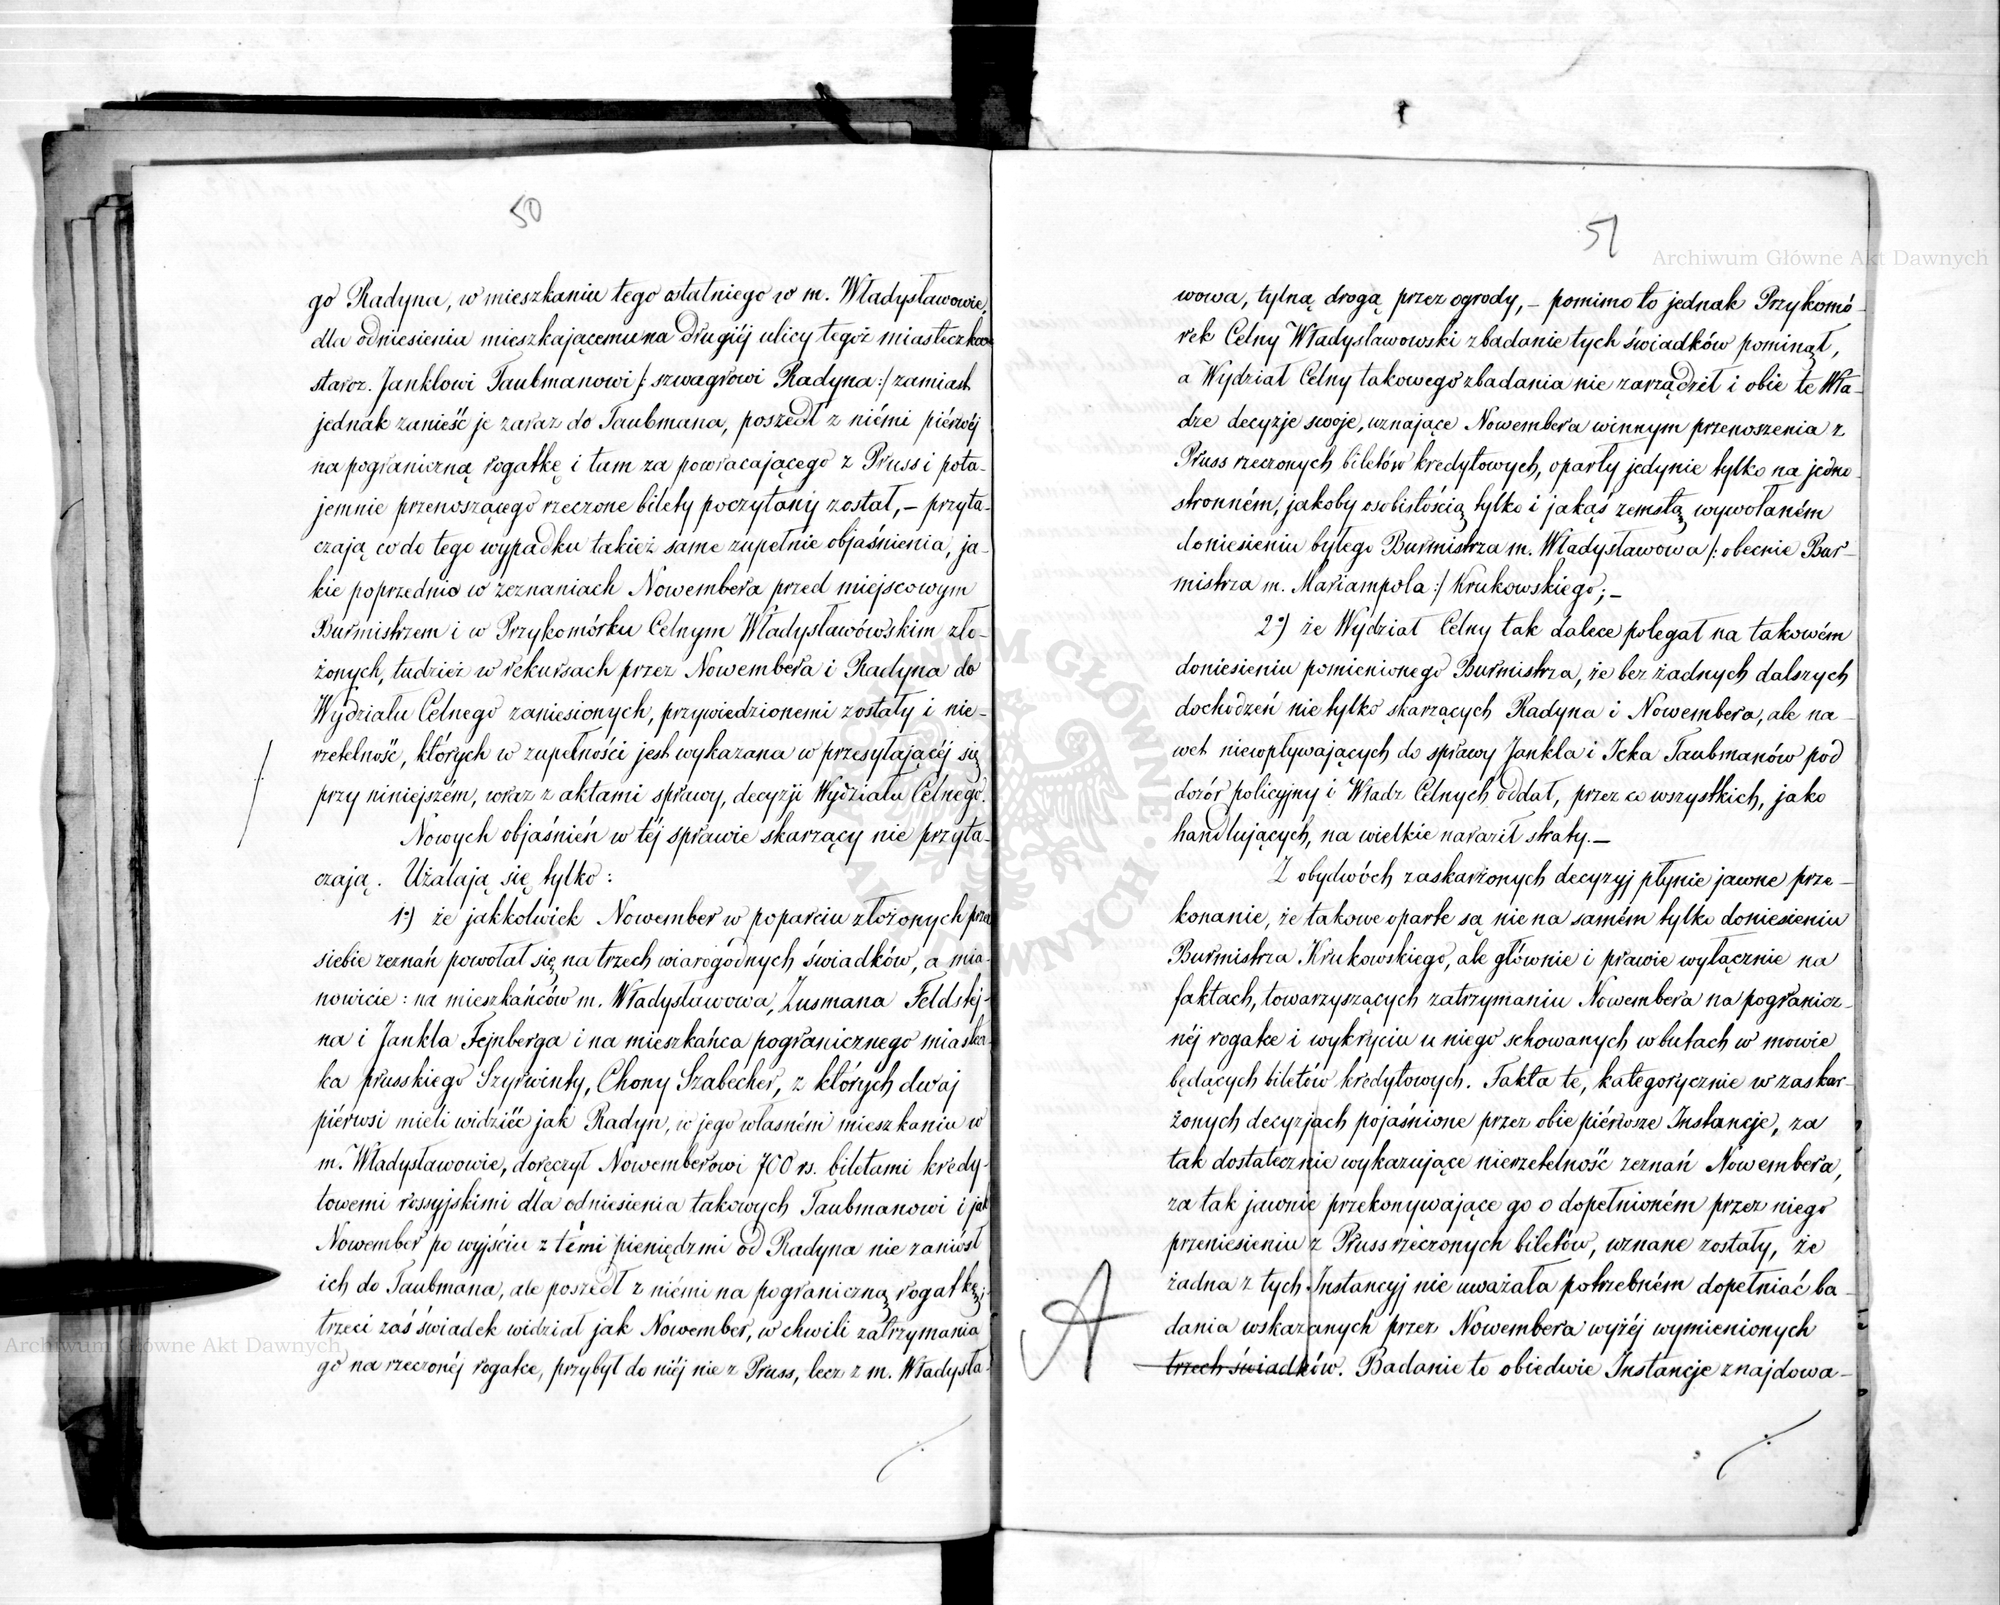 50
go Radyna, w mieszkaniu tego ostatniego w m. Władysławowie,
dla odniesienia mieszkającemu na drugiéj ulicy tegoż miasteczka
staroz. Janklowi Taubmanowi /: szwagrowi Radyna :/ zamiast
jednak zanieść je zaraz do Taubmana, poszedł z niémi piérwéj
na pograniczną rogatkę i tam za powracającego z Pruss i pota-
jemnie przenoszącego rzeczone bilety poczytany został, – przyta-
czają co do tego wypadku takież same zupełnie objaśnienia, ja-
kie poprzednio w zeznaniach Nowembera przed miejscowym
Burmistrzem i w Przykomórku Celnym Władysławówskim zło-
żonych, tudzież w rekursach przez Nowembera i Radyna do
Wydziału Celnego zaniesionych, przywiedzionemi zostały i nie-
rzetelność, których w zupełności jest wykazana w przesyłającéj się
przy niniejszém, wraz z aktami sprawy, decyzji Wydziału Celnego.
Nowych objaśnień w téj sprawie skarzący nie przyta-
czają. Użalają się tylko:
1o) że jakkolwiek Nowember w poparciu złożonych prze
siebie zeznań powołał się na trzech wiarogodnych świadków, a mia-
nowicie: na mieszkańców m. Władysławowa, Zusmana Feldstej-
na i Jankla Fejnberga i na mieszkańca pogranicznego miastecz-
ka prusskiego Szyrwinty, Chony Szabecher, z których dwaj
piérwsi mieli widzieć jak Radyn, w jego własném mieszkaniu w
m. Władysławowie, doręczył Nowemberowi 700 rs. biletami kredy-
towemi rossyjskimi dla odniesienia takowych Taubmanowi i jak
Nowember po wyjściu z témi pieniędzmi od Radyna nie zaniósł
ich do Taubmana, ale poszedł z niémi na pograniczną rogatkę;
trzeci zaś świadek widział jak Nowember, w chwili zatrzymania
go na rzeczonéj rogatce, przybył do niéj nie z Pruss, lecz z m. Władysła-
51
wowa, tylną drogą przez ogrody, – pomimo to jednak Przykomó-
rek Celny Władysławowski zbadanie tych świadków pominął,
a Wydział Celny takowego zbadania nie zarządził i obie te Wła-
dze decyzje swoje, uznające Nowembera winnym przenoszenia z
Pruss rzeczonych biletów kredytowych, oparły jedynie tylko na jedno-
stronném, jakoby osobistością tylko i jakąś zemstą wywołaném
doniesieniu byłego Burmistrza m. Władysławowa /: obecnie Bur-
mistrza m. Mariampola :/ Krukowskiego; –
2o) że Wydział Celny tak dalece polegał na takowém
doniesieniu pomienionego Burmistrza, że bez żadnych dalszych
dochodzeń nie tylko skarzących Radyna i Nowembera, ale na-
wet niewpływających do sprawy Jankla i Icka Taubmanów pod
dozór policyjny i Władz Celnych oddał, przez co wszystkich, jako
handlujących, na wielkie naraził straty. –
Z obydwóch zaskarżonych decyzyj płynie jawne prze-
konanie, że takowe oparte są nie na samém tylko doniesieniu
Burmistrza Krukowskiego, ale głównie i prawie wyłącznie na
faktach, towarzyszących zatrzymaniu Nowembera na pogranicz-
néj rogatce i wykryciu u niego schowanych w butach w mowie
będących biletów kredytowych. Fakta te, kategorycznie w zaskar-
żonych decyzjach pojaśnione przez obie piérwsze Instancje, za
tak dostatecznie wykazujące nierzetelność zeznań Nowembera,
za tak jawnie przekonywające go o dopełnioném przez niego
przeniesieniu z Pruss rzeczonych biletów, uznane zostały, że
żadna z tych Instancyj nie uważała potrzebném dopełniać ba-
dania wskazanych przez Nowembera wyżéj wymienionych
trzech świadków. Badanie to obiedwie Instancje znajdowa-
A
Archiwum Główne Akt Dawnych
Archiwum Główne Akt Dawnych
ARCHIWUM GŁÓWNE AKT DAWNYCH